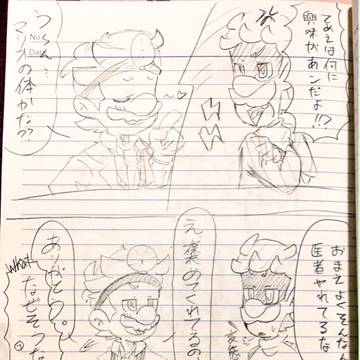 てめえは何に
興味があンだよ!!?
うーん…
No.
Date
マリオの体かな??
おまえよくそんな
医者やれてるな
え、褒めてくれてるの、
ありがとう。
What
なぜそうな